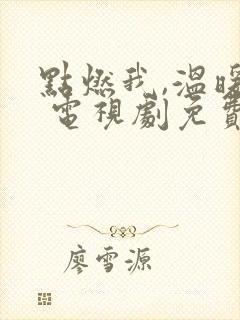 點燃我,溫暖
電視劇免費
廖雪源